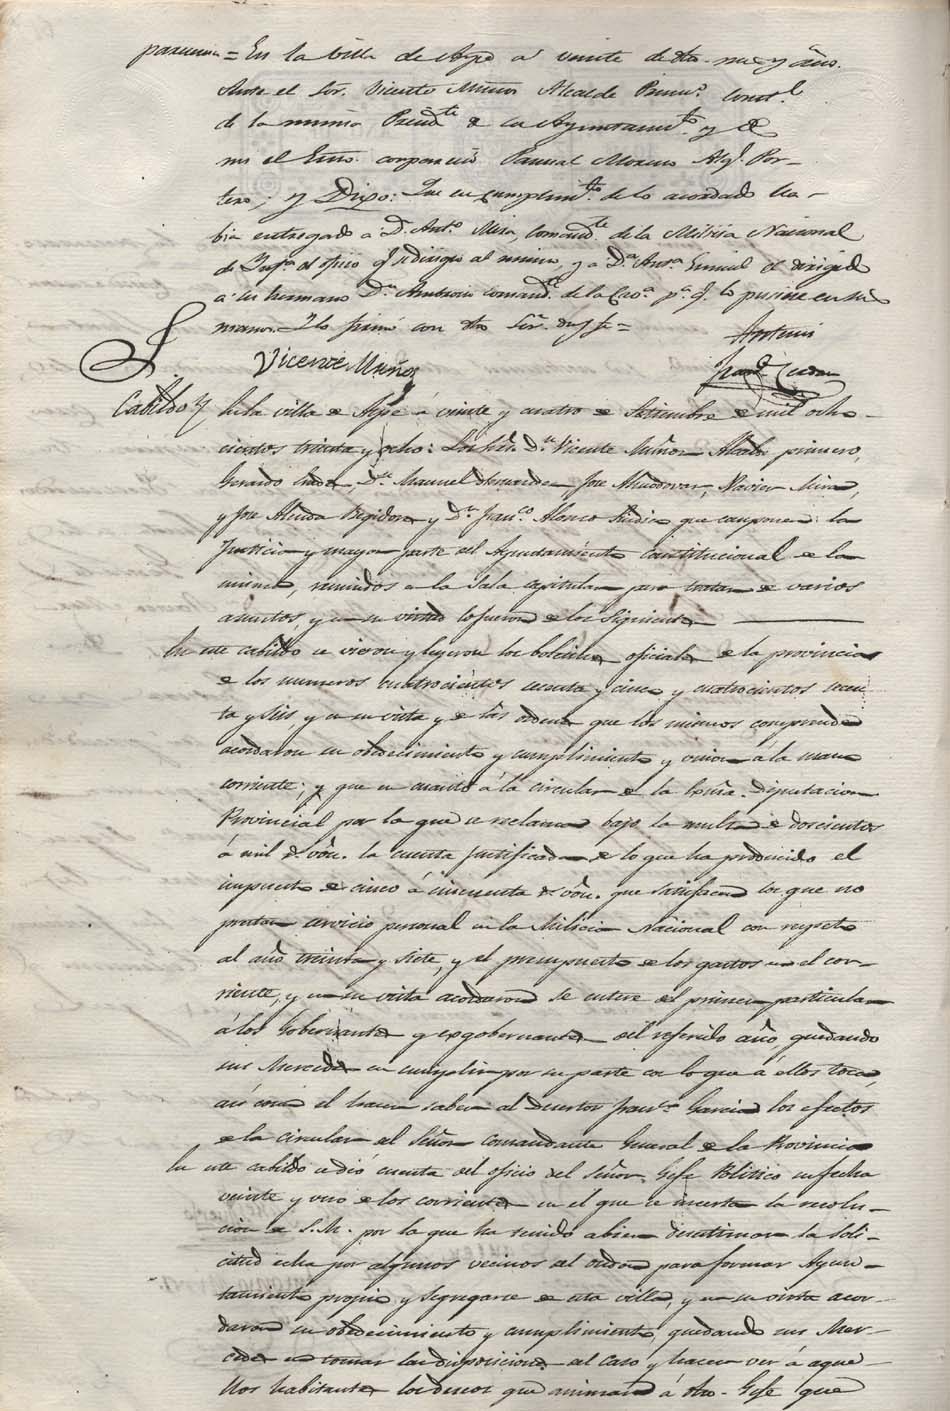 En la villa de Aspe á veinte de dho. mes y año.
Ante el Sor. Vicente Muñoz Alcalde Primo. Const.l
de la misma Presidte. de su Ayuntamto. y de
mi el Esno. compareció Pascual Moreno Algl. Por-
tero; y Dixo: Que en cumplimto. de lo acordado ha-
bia entregado á Dn. Anto. Mira, Comandte. de la Milicia Nacional
de Infa. el oficio q. se dirigio al mismo, y a Da. Ana el dirigido
a su hermano Dn. Ambrosio Comandte. de la Caba. pa. q. lo pusiese en sus
manos. Y lo firmó con dho Señor doy fe=
Vicente Muñoz
Antemi
Cabildo En la villa de Aspe á veinte y cuatro de Setiembre de mil ocho-
cientos treinta y ocho: Los Señs. Dn. Vicente Muñoz Alcalde primero,
Gerardo Dn. Manuel Jose Almodovar, Xavier Mira,
y Jose Almida Regidores y Dn. Franco. Alonso Sindico que componen la
Justicia y mayor parte del Ayuntamiento Constitucional de la
misma, reunidos en la Sala capitular para tratar de varios
asuntos, y en su virtud lo fueron de los siguientes
En este cabildo se vieron y leyeron los boletines oficiales de la provincia
de los numeros cuatrocientos secenta y cinco y cuatrocientos secen-
ta y seis y en su vista y de las ordenes que los mismos comprenden
acordaron su obedecimiento y cumplimiento y union á la mano
corriente; y que en cuanto á la circular de la Exma. Diputacion
Provincial por la que se reclama bajo la multa de doscientos
á mil rs. von. la cuenta justificada de lo que ha producido el
impuesto de cinco á cincuenta rs. von. que satisfacen los que no
prestan servicio personal en la Milicia Nacional con respeto
al año treinta y siete, y el presupuesto de los gastos en el cor-
riente, y en su vista acordaron se entere del primer particular
á los Gobernantes y exgobernantes del referido año, quedando
sus Mercedes en cumplir por su parte con lo que á ellos toca,
asi como el hacer saber al Desertor Franco. Garcia los efectos
de la circular del Señor Comandante General de la Provincia
En este cabildo se dió cuenta del oficio del Señor Gefe Politico su fecha
veinte y uno de los corrientes en el que se inserta la resolu-
cion de S.M. por la que ha tenido abien desestimar la Soli-
citud echa por algunos vecinos del ondon para formar Ayun-
tamiento propio y segregarse de esta villa, y en su vista acor-
daron su obedecimiento y cumplimiento, quedando sus Mer-
cedes en tomar las disposiciones al caso y hacer ver á aque-
llos habitantes los deseos que animan á dho. Gefe que